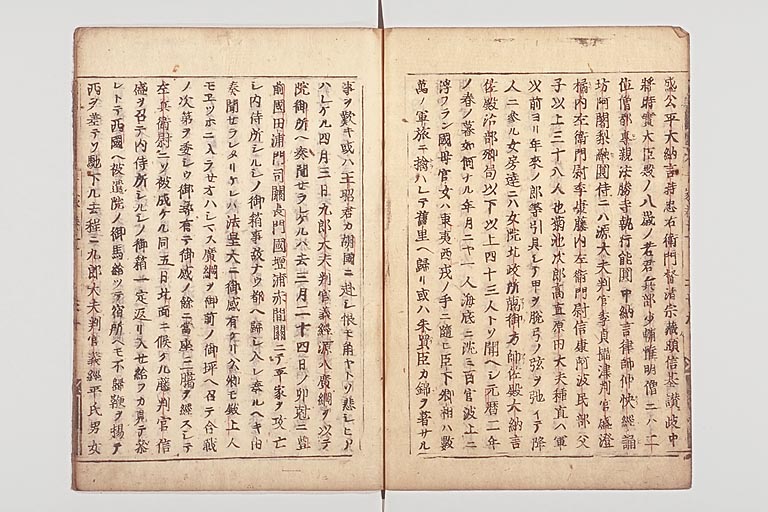 盛公平大納言時忠右衛門督清宗蔵頭信基讃岐中
将時實大臣殿ノ八歳ノ若君兵部少輔惟明僧ニハ二
位僧都專親法勝寺執行能圓中納言律師仲快經誦
坊阿闍梨祐圓侍ニハ源大夫判官季貞攝津判官盛澄
橘内左衛門尉季康藤内左衛門尉信康阿波民部父
子以上三十八人也菊池次郎高直原田大夫種直ハ軍
以前ヨリ年來ノ郎等引具シテ甲ヲ脱弓ノ弦ヲ弛イテ降
人ニ參ル女房達ニハ女院北政所臈御方帥佐殿大納言
佐殿治部卿局以下以上四十三人トソ聞ヘシ元暦二年
ノ春ノ暮如何ナル年月ニテ一人海底ニ沈ミ百官波上ニ
浮フラン國母官女ハ東夷西戎ノ手ニ隨ヒ臣下卿相ハ數
萬ノ軍旅ニ擒ハレテ舊里ヘ歸リ或ハ朱買臣カ錦ヲ著サル
事ヲ歎キ或ハ王昭君カ胡國ニ赴シ恨モ角ヤトソ悲シミアハレケル
四月三日九郎大夫判官義經源八廣綱ヲ以テ
院御所ヘ奏聞セラレケルハ去三月二十四日ノ卯剋ニ豐
前國田浦門司關長門國壇浦赤間關ニテ平家ヲ攻亡
シ内侍所シルシノ御箱事故ナウ都ヘ歸シ入レ奉ルヘキ由
奏聞セラレタリケレハ法皇大ニ御感有ケリ公卿モ殿上人
モヱツホニ入ラせオハシマス廣綱ヲ御前ノ御坪ヘ召テ合戰
ノ次第ヲ委シウ御尋有テ御感ノ餘ニ當座ニ臈ヲ經スシテ
左兵衛尉ニソ被成ケル同五日北面ニ候ケル藤判官信
盛ヲ召テ内侍所シルシノ御箱一定返リ入セ給フカ見テ參
レトテ西國ヘ被遣院ノ御馬給ツテ宿所ヘモ不歸鞭ヲ揚テ
西ヲ差テソ馳下ル去程ニ九郎大夫判官義經平氏男女